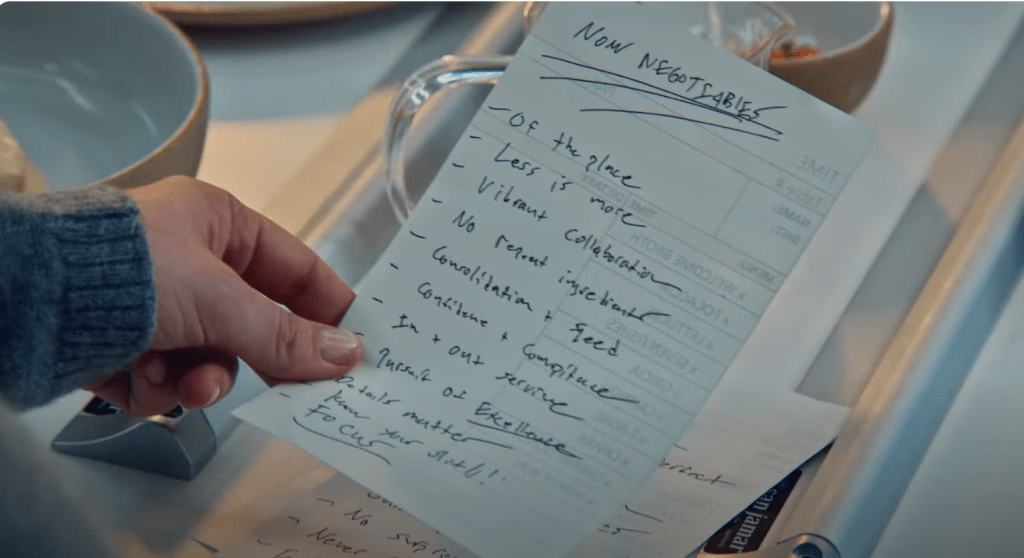 NON NEGOTIABLES
- Of the place
- Less is more
- Vibrant Collaboration
- No repeat ingredients
- Consolidation + Speed
- Confidence + Competence
- In + out service
- Pursuit of Excellence
- Details matter
- Know your shit!!
FOCUS
TIME:
Table #
NAME:
DIET:
MENU:
x WELCOME BROTH
x FOCACC
x LETTUC
x SEVEN FISHES
perfect
- No
- Never
san jamar